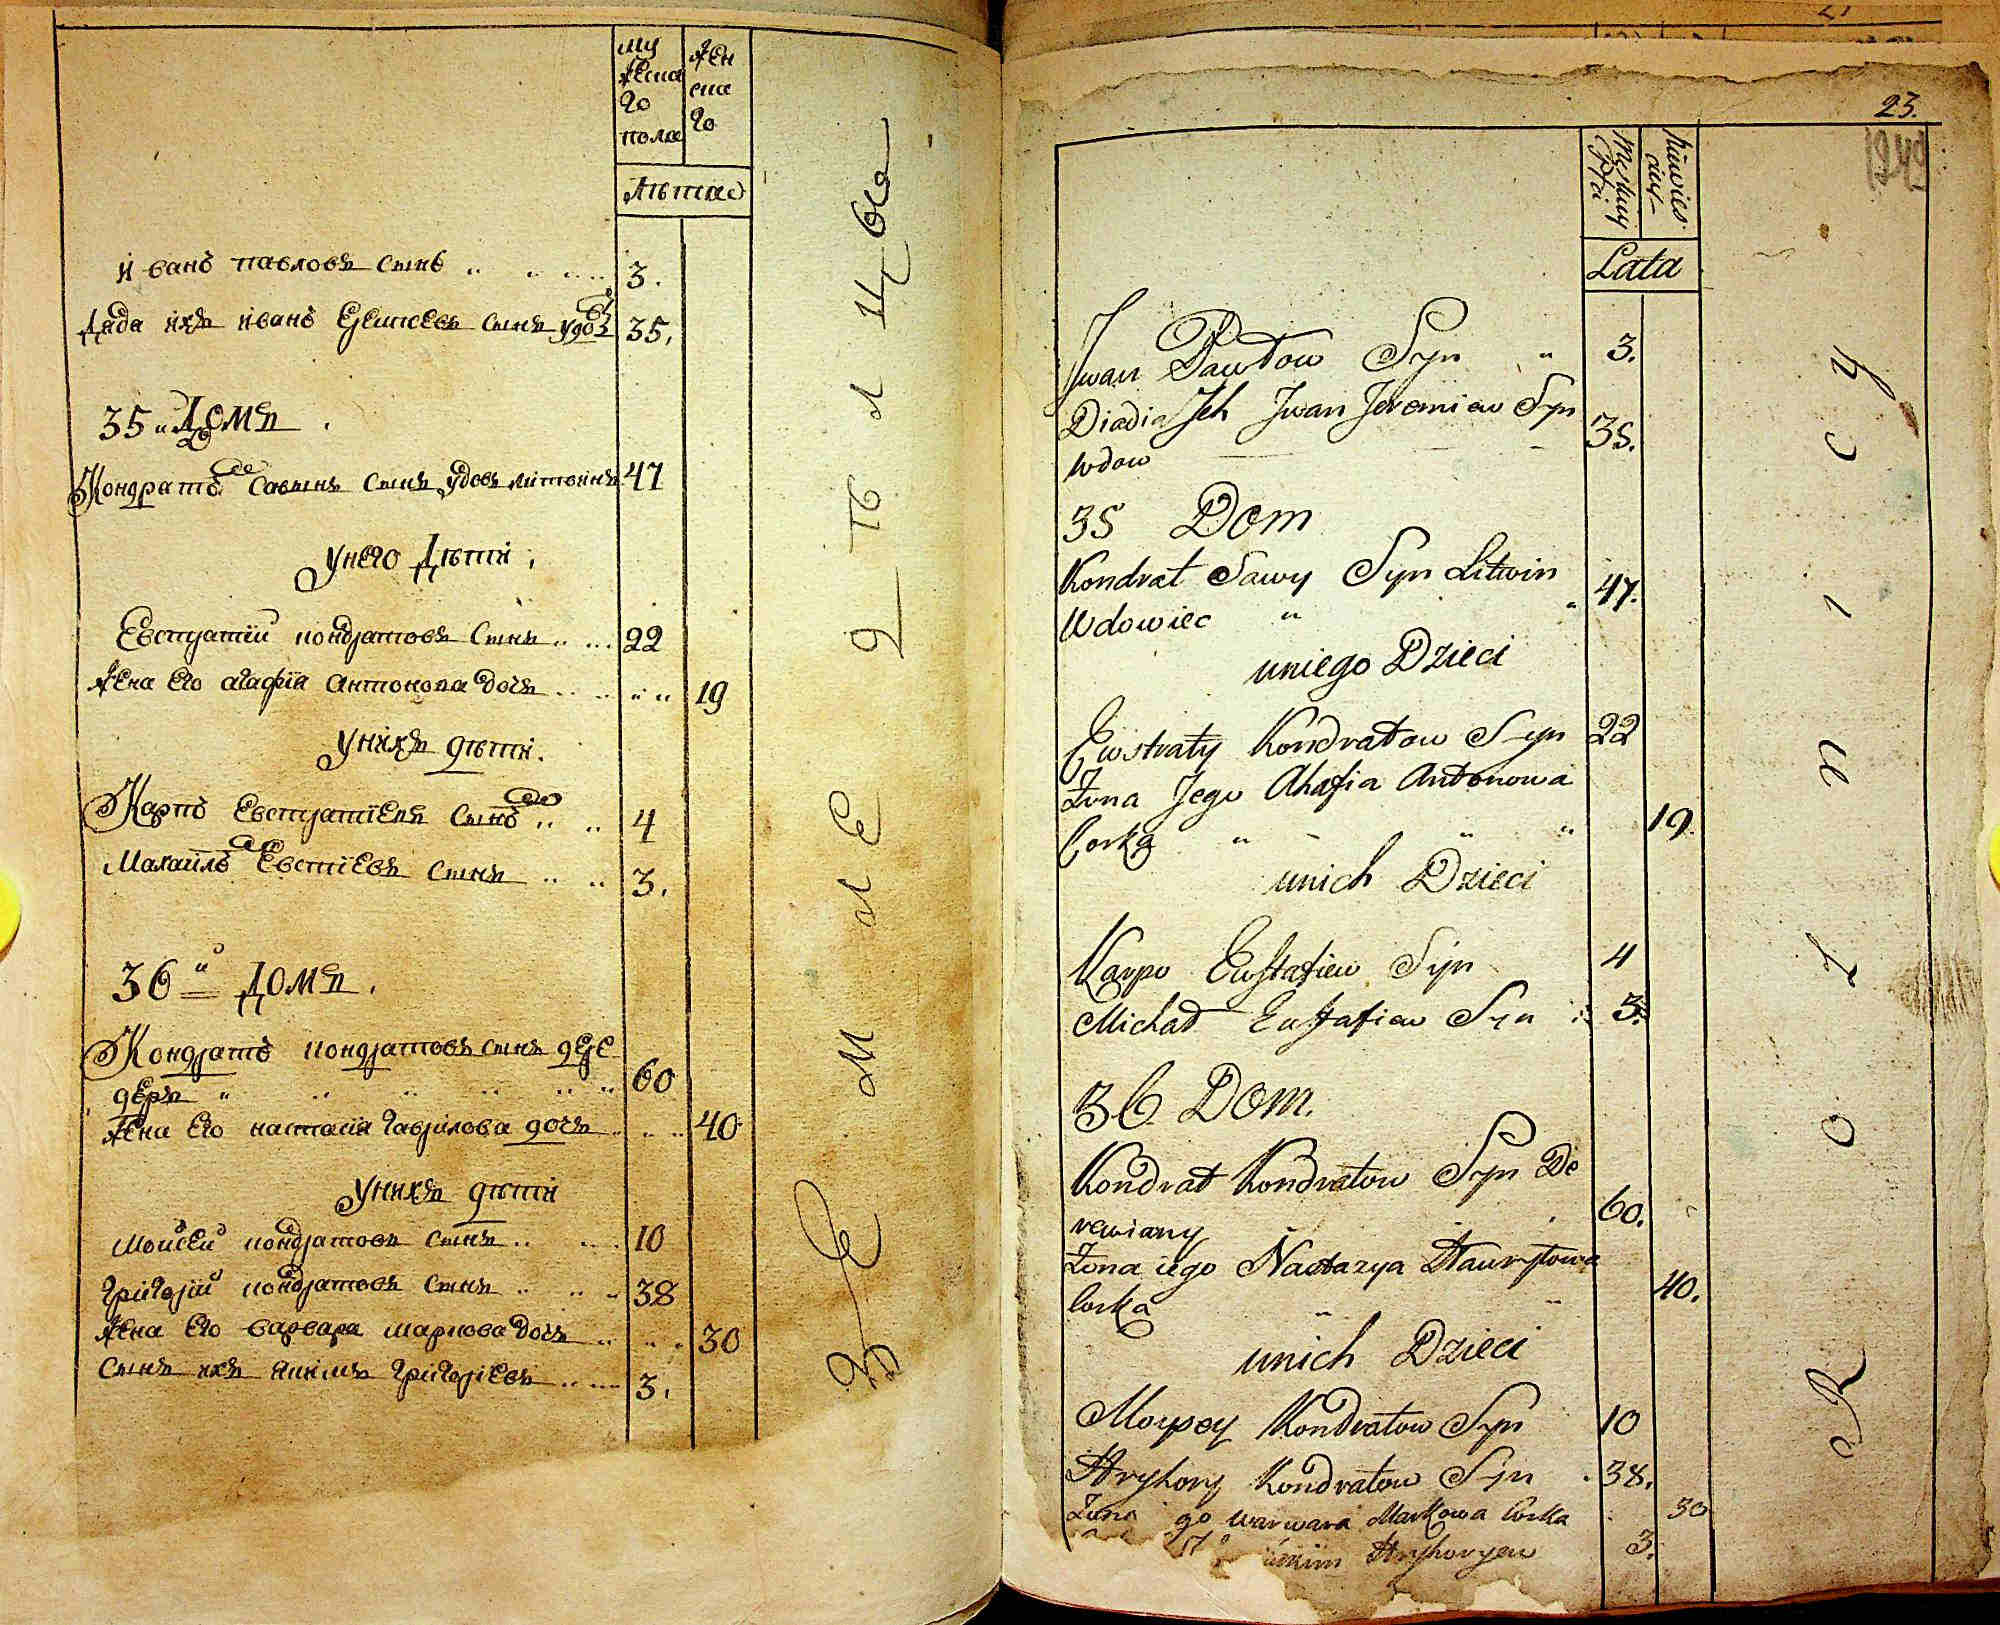 му
жеска
го
пола
жен
ска
го
лѣта
иванъ павловъ сынъ 3.
дядя ихъ иванъ сынъ 35.
35 й Домъ.
Кондратъ савинъ сынъ удовъ литвинъ 47
унего Дѣти.
Евстратий кондратовъ сынъ 22
жена его агафія антонова дочь 19
унихъ дѣти.
Карпъ Евстратіевъ сынъ 4
Михаилъ Евстіевъ сынъ 3.
36 й Домъ.
Кондратъ кондратовъ сынъ дере
60
жена его настасія гаврилова дочь 40
унихъ дѣти
Моисей кондратовъ сынъ 10
григорій кондратовъ сынъ 38
жена его варвара маркова дочь 30
сынъ ихъ якимъ григоріевъ 3.
З Е М Л Е Д Ѣ Л Ц Ы
23.
Lata
Jwan Pawłow Syn 3.
Diadia Jch Jwan Jeremiew Syn
wdow 35.
35 Dom
Kondrat Sawy Syn Litwin
Wdowiec 47.
uniego Dzieci
Ewstraty Kondratow Syn 22
Żona Jego Ahafia Antonowa
Corka 19.
unich Dzieci
Karpo Eustafiew Syn 4
Michał Eustafiew Syn 3.
36 Dom.
Kondrat Kondratow Syn De
rewiany 60.
Żona iego Nastazya Hawryłowa
Corka 40.
unich Dzieci
Moysey Kondratow Syn 10
Hryhory Kondratow Syn 38.
Żona go warwara Markowa Corka 30
Hryhoryew 3.
R o l n i c y